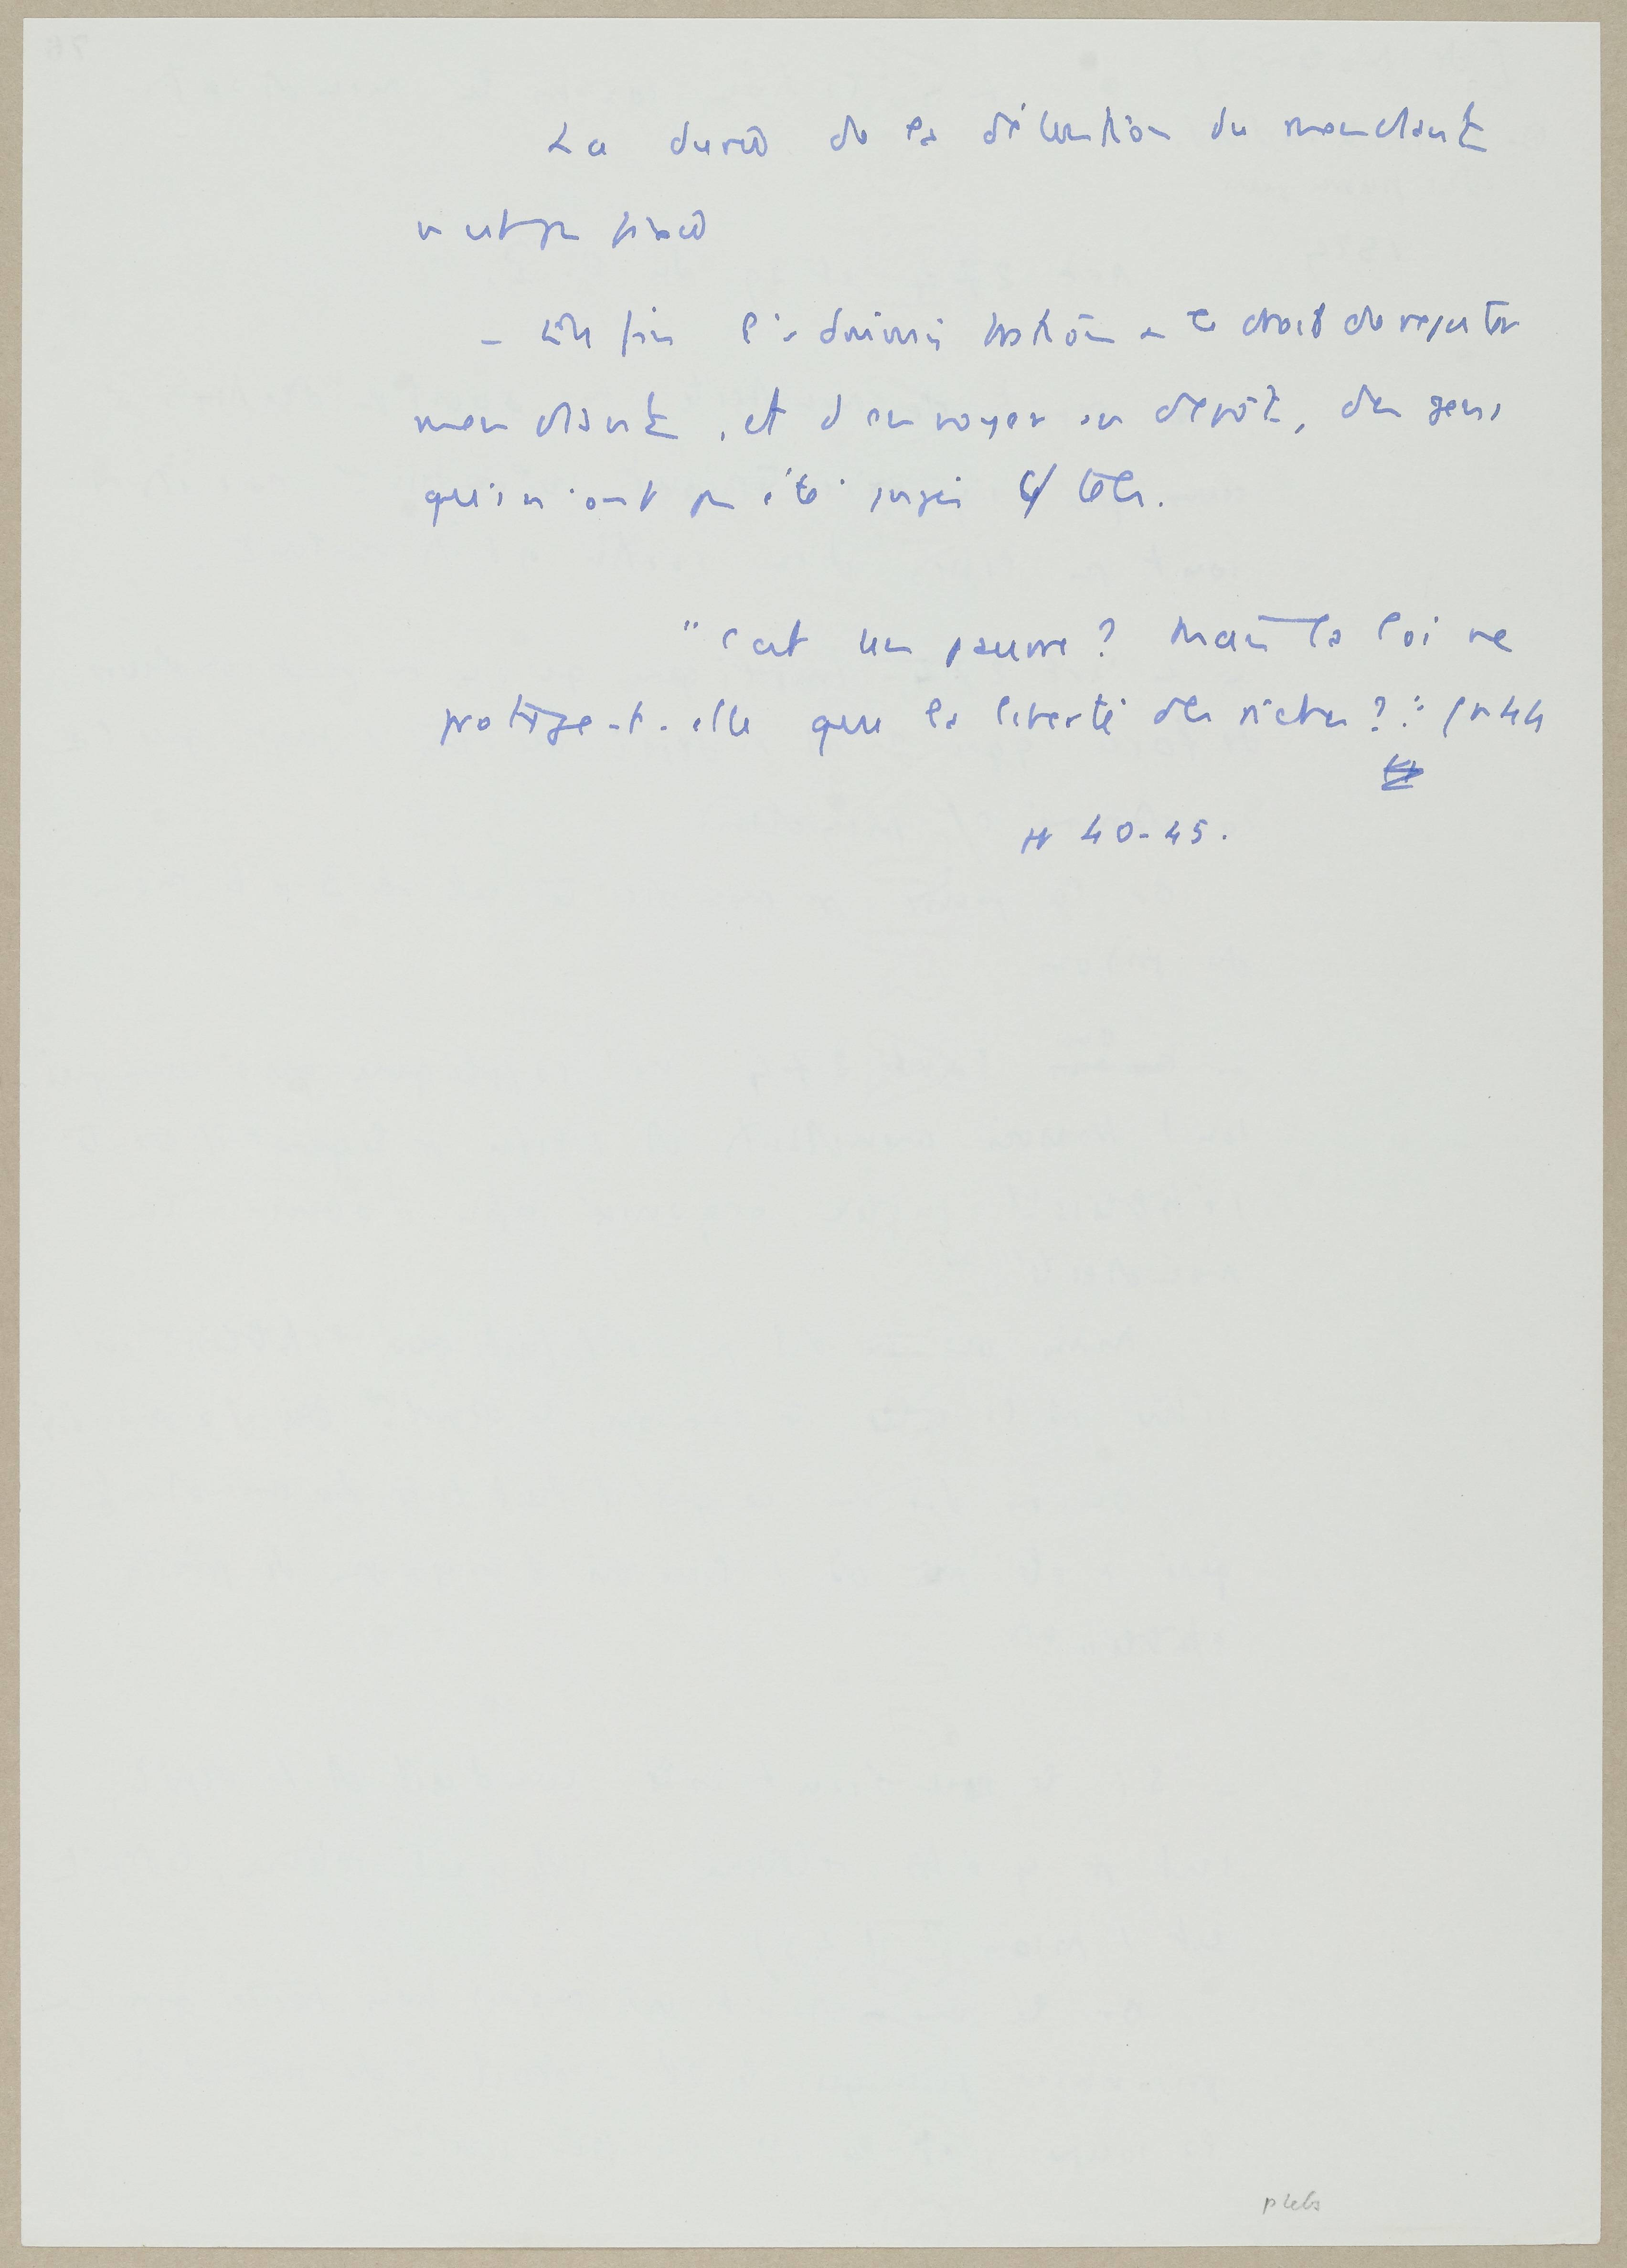 La durée de la détention du mendiant
n'est pas fixée
- Enfin l'administration a le droit de réputer
mendiants, et d'envoyer en dépôt, des gens
qui n'ont pas été jugés c/ tels.
"C'est un pauvre? Mais la loi ne
protège-t-elle que la liberté des riches?" p 44
pp 40-45.
plebs